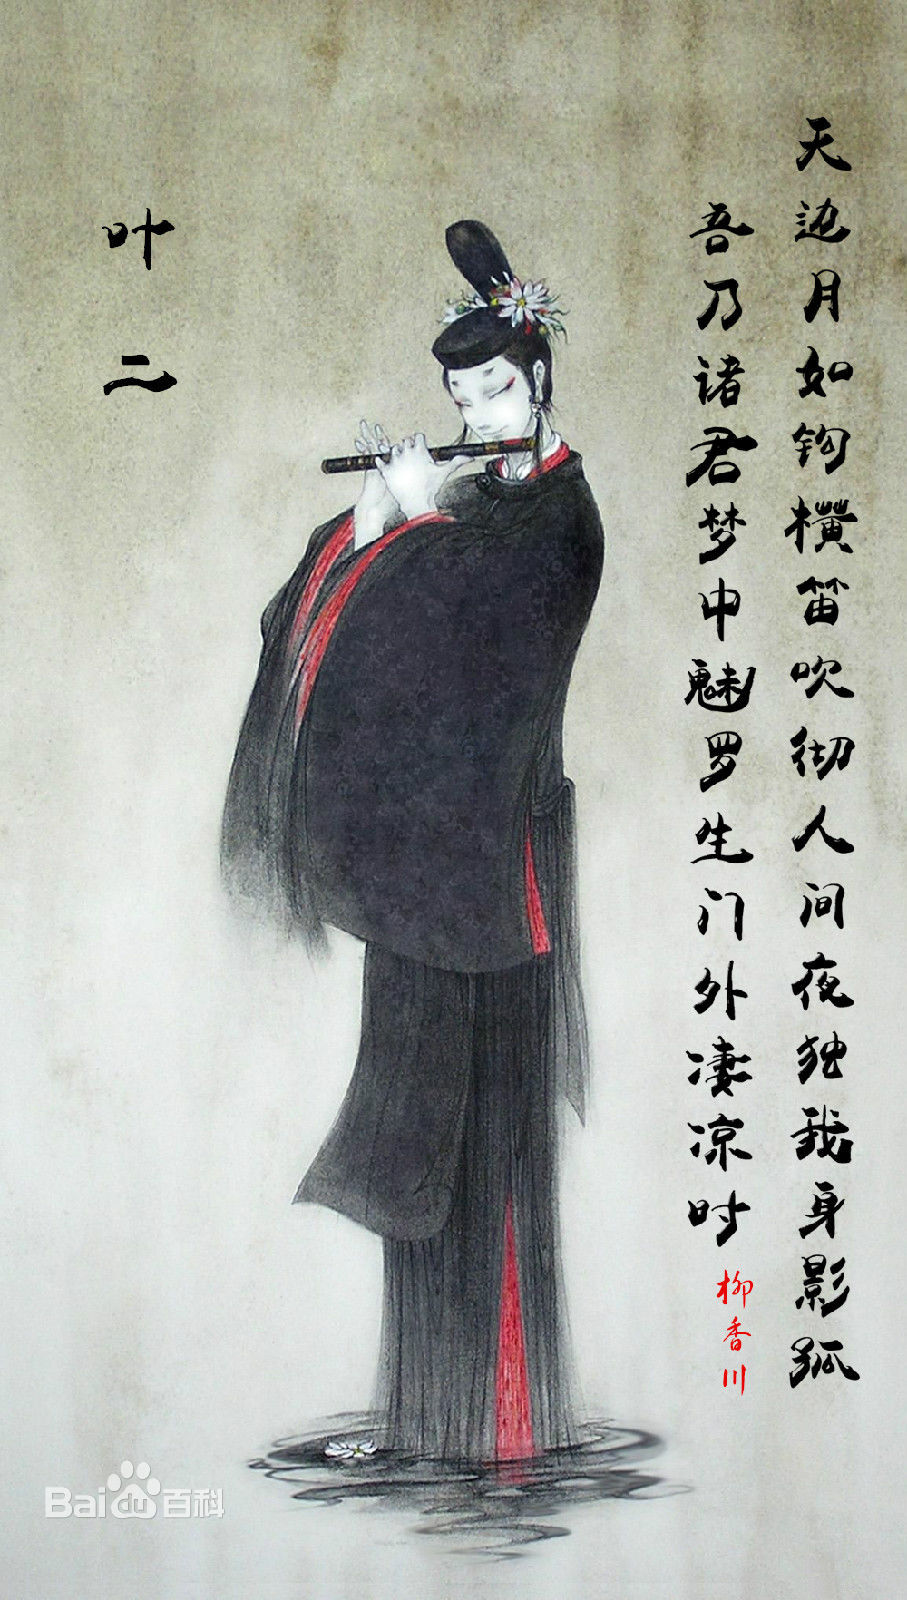 天边月如钩横笛吹彻人间夜独我身影孤
吾乃诸君梦中魅罗生门外凄凉时
柳香川
叶二
Baidu百科